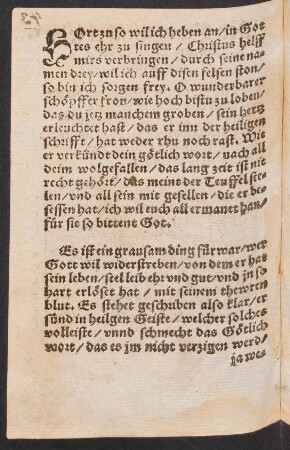 HOrt zu so wil ich heben an/in Got
tes ehr zu singen / Christus helff
mirs verbringen / durch seine na
men drey/wil ich auff disen felsen ston/
so bin ich sorgen frey. O wunderbarer
schöpffer fron/wie hoch bistu zu loben/
das du jetz manchem groben / sein hertz
erleuchtet hast / das er inn der heiligen
schrifft / hat weder rhu noch rast. Wie
er verkündt dein götlich wort/nach all
deim wolgefallen / das lang zeit ist nit
recht gehört/ das meint der Teuffel ste
len/vnd all sein mit gesellen / die er be
sessen hat/ich wil euch all ermanet han/
für sie so bittent Got.
Es ist ein grausam ding fürwar/wer
Gott wil widerstreben/von dem er hat
sein leben/stel leib ehr vnd gut/vnd jn so
hart erlöset hat / mit seinem thewren
blut. Es stehet geschriben also klar/er
sünd in heilgen Geiste / welcher solches
volleiste / vnnd schmecht das Götlich
wort / das es jm nicht verzigen werd/
ja we